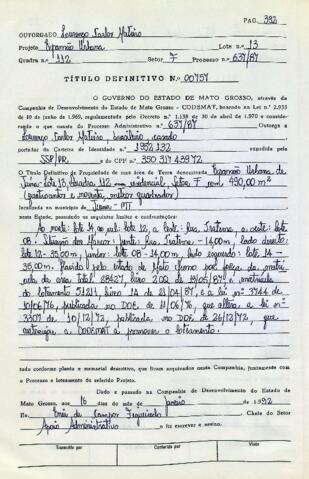 PAG. 392
OUTORGADO Lourenço Carlos Mateiro
Projeto Expansão Urbana Lote n.º 13
Quadra n.º 112 Setor 7 Processo n.º 637/87
TÍTULO DEFINITIVO N.º 00757
O GOVERNO DO ESTADO DE MATO GROSSO, através da
Companhia de Desenvolvimento do Estado de Mato Grosso - CODEMAT, baseado na Lei n.º 2.933
de 10 de junho de 1969, regulamentada pelo Decreto n.º 1.138 de 30 de abril de 1970 e conside-
rando o que consta do Processo Administrativo n.º 637/87 Outorga a
Lourenço Carlos Mateiro, brasileiro, casado
portador da Carteira de Identidade n.º 1952132 expedida pela
SSP/PR e do CPF n.º 350 317 439 72
O Título Definitivo de Propriedade de sua área de Terra denominada Expansão Urbana de
Juína - Lote 13, Quadra 112 - residencial, Setor 7 com 490,00 m²
(quatrocentos e noventa, metros quadrados)
localizada no município de Juína - MT
neste Estado, passando os seguintes limites e confrontações:
Ao norte: lote 14, ao sul: lote 12, a leste: Rua , a oeste: lote
08. Situação dos Marcos: frente: Rua - 14,00m, lado direito:
lote 12 - 35,00m, fundos: lote 08 - 14,00m, lado esquerdo: lote 14 -
35,00m. Havida pelo Estado de Mato Grosso por força da matrí-
cula da área total 28427, livro 2 de 19/05/87 e matrícula
do loteamento 51211, livro 14 de 21/04/87, e a lei nº 3744 de
10/06/76, publicada no DOE de 11/06/76, que altera a lei nº
3307 de 10/12/72, publicada no DOE de 26/12/72, que
autoriza a CODEMAT a promover o loteamento.
tudo conforme planta e memorial descritivo, que ficam arquivados nesta Companhia, juntamente com
o Processo e loteamento do referido Projeto.
Dado e passado na Companhia de Desenvolvimento do Estado de
Mato Grosso, aos 16 dias do mês de janeiro de 1992
Eu, de Campos Figueiredo Chefe do Setor
Apoio Administrativo o fiz escrever e assino.
Transcrito por Conferido por Visto